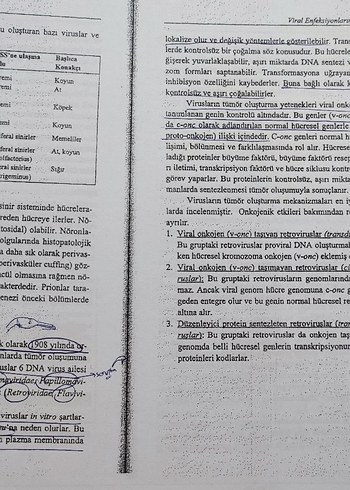 u oluşturan bazı viruslar ve
SS'ne ulaşma
Başlıca
Konakçı
emi
Koyun
emi
At
remi
Köpek
emi
Koyun
feral sinirler
Memeliler
feral sinirler
At, koyun
olfactorius)
feral sinirler
Sığır
rigeminus)
sinir sisteminde hücrelera-
reden hücreye ilerler. Nö-
tosidal) olabilir. Nöronla-
olgularında histopatolojik
a daha sık olarak perivas-
perivasküler cuffing) göz-
cül olmasına rağmen nö-
akterdedir. Prionlar tara-
enezi önceki bölümlerde
k olarak 1908 yılında or-
nlarda tümör oluşumuna
uslar 6 DNA virus ailesi
Papillomavi-
(Retroviridae, Flavivi-
viruslar in vitro şartlar-
neden olurlar. Bu
n plazma membranında
Viral Enfeksiyonların
lokalize olur ve değişik yöntemlerle gösterilebilir. Trans
lerde kontrolsüz bir çoğalma söz konusudur. Bu hücrele
ğişerek yuvarlaklaşabilir, aşırı miktarda DNA sentezi v
zom formları saptanabilir. Transformasyona uğrayan
inhibisyon özelliğini kaybederler. Buna bağlı olarak k
kontrolsüz ve aşırı çoğalabilirler.
Virusların tümör oluşturma yetenekleri viral onk
tanımlanan genin kontrolü altındadır. Bu genler (v-onc)
da c-onc olarak adlandırılan normal hücresel genlerle
proto-onkojen) ilişki içindedir. C-onc genleri normal h
işimi, bölünmesi ve farklılaşmasında rol alır. Hücresel
ladığı proteinler büyüme faktörü, büyüme faktörü resep
ri iletimi, transkripsiyon faktörü ve hücre siklusu kontr
görev yaparlar. Bu proteinlerin kontrolsüz, aşırı mikta
manlarda sentezlenmesi tümör oluşumuyla sonuçlanır.
Virusların tümör oluşturma mekanizmaları en iy
larda incelenmiştir. Onkojenik etkileri bakımından re
ayrılır.
1. Viral onkojen (v-onc) taşıyan retroviruslar (transd
Bu gruptaki retroviruslar proviral DNA oluşturmal
ken hücresel kromozoma onkojen (v-onc) eklemiş o
2. Viral onkojen (v-onc) taşımayan retroviruslar (ci
ruslar): Bu gruptaki retrovirusların genomlarında
maz. Ancak viral genom hücre genomuna c-onc g
geden entegre olur ve bu genin normal hücresel re
altına alır.
3. Düzenleyici protein sentezleten retroviruslar (tran
ruslar): Bu gruptaki retroviruslar da onkojen taş
genomda belli hücresel genlerin transkripsiyonun
proteinleri kodlarlar.